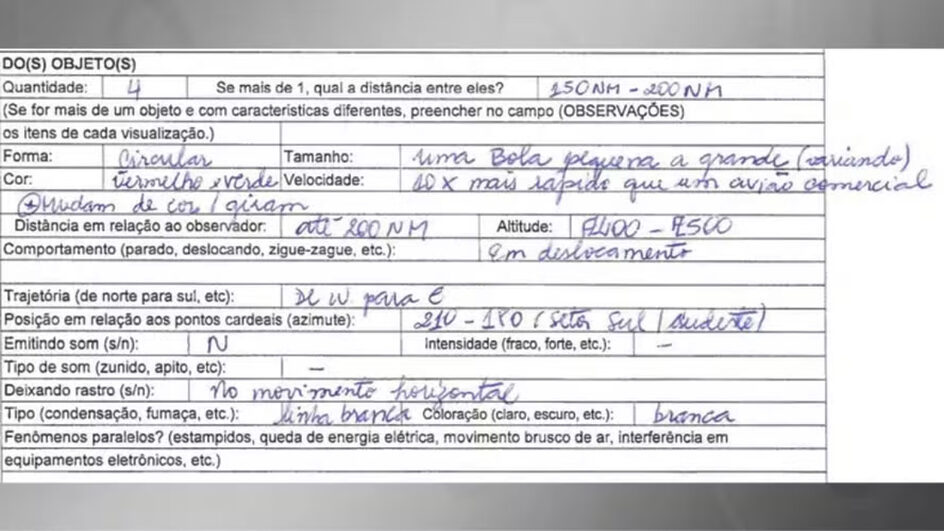 DO(S) OBJETO(S)
Quantidade: 4 Se mais de 1, qual a distância entre eles? 150NM - 200NM
(Se for mais de um objeto e com características diferentes, preencher no campo (OBSERVAÇÕES)
os itens de cada visualização.)
Forma: Circular Tamanho: uma Bola pequena a grande (variando)
Cor: vermelho e verde Velocidade: 10x mais rápido que um avião comercial
Mudam de cor / giram
Distância em relação ao observador: até 200NM Altitude: - 7500
Comportamento (parado, deslocando, zigue-zague, etc.): Em deslocamento
Trajetória (de norte para sul, etc): De W para E
Posição em relação aos pontos cardeais (azimute): 210 - 180 (setor sul / sudeste)
Emitindo som (s/n): N Intensidade (fraco, forte, etc.): -
Tipo de som (zunido, apito, etc): -
Deixando rastro (s/n): No movimento horizontal
Tipo (condensação, fumaça, etc.): linha branca Coloração (claro, escuro, etc.): branca
Fenômenos paralelos? (estampidos, queda de energia elétrica, movimento brusco de ar, interferência em
equipamentos eletrônicos, etc.)